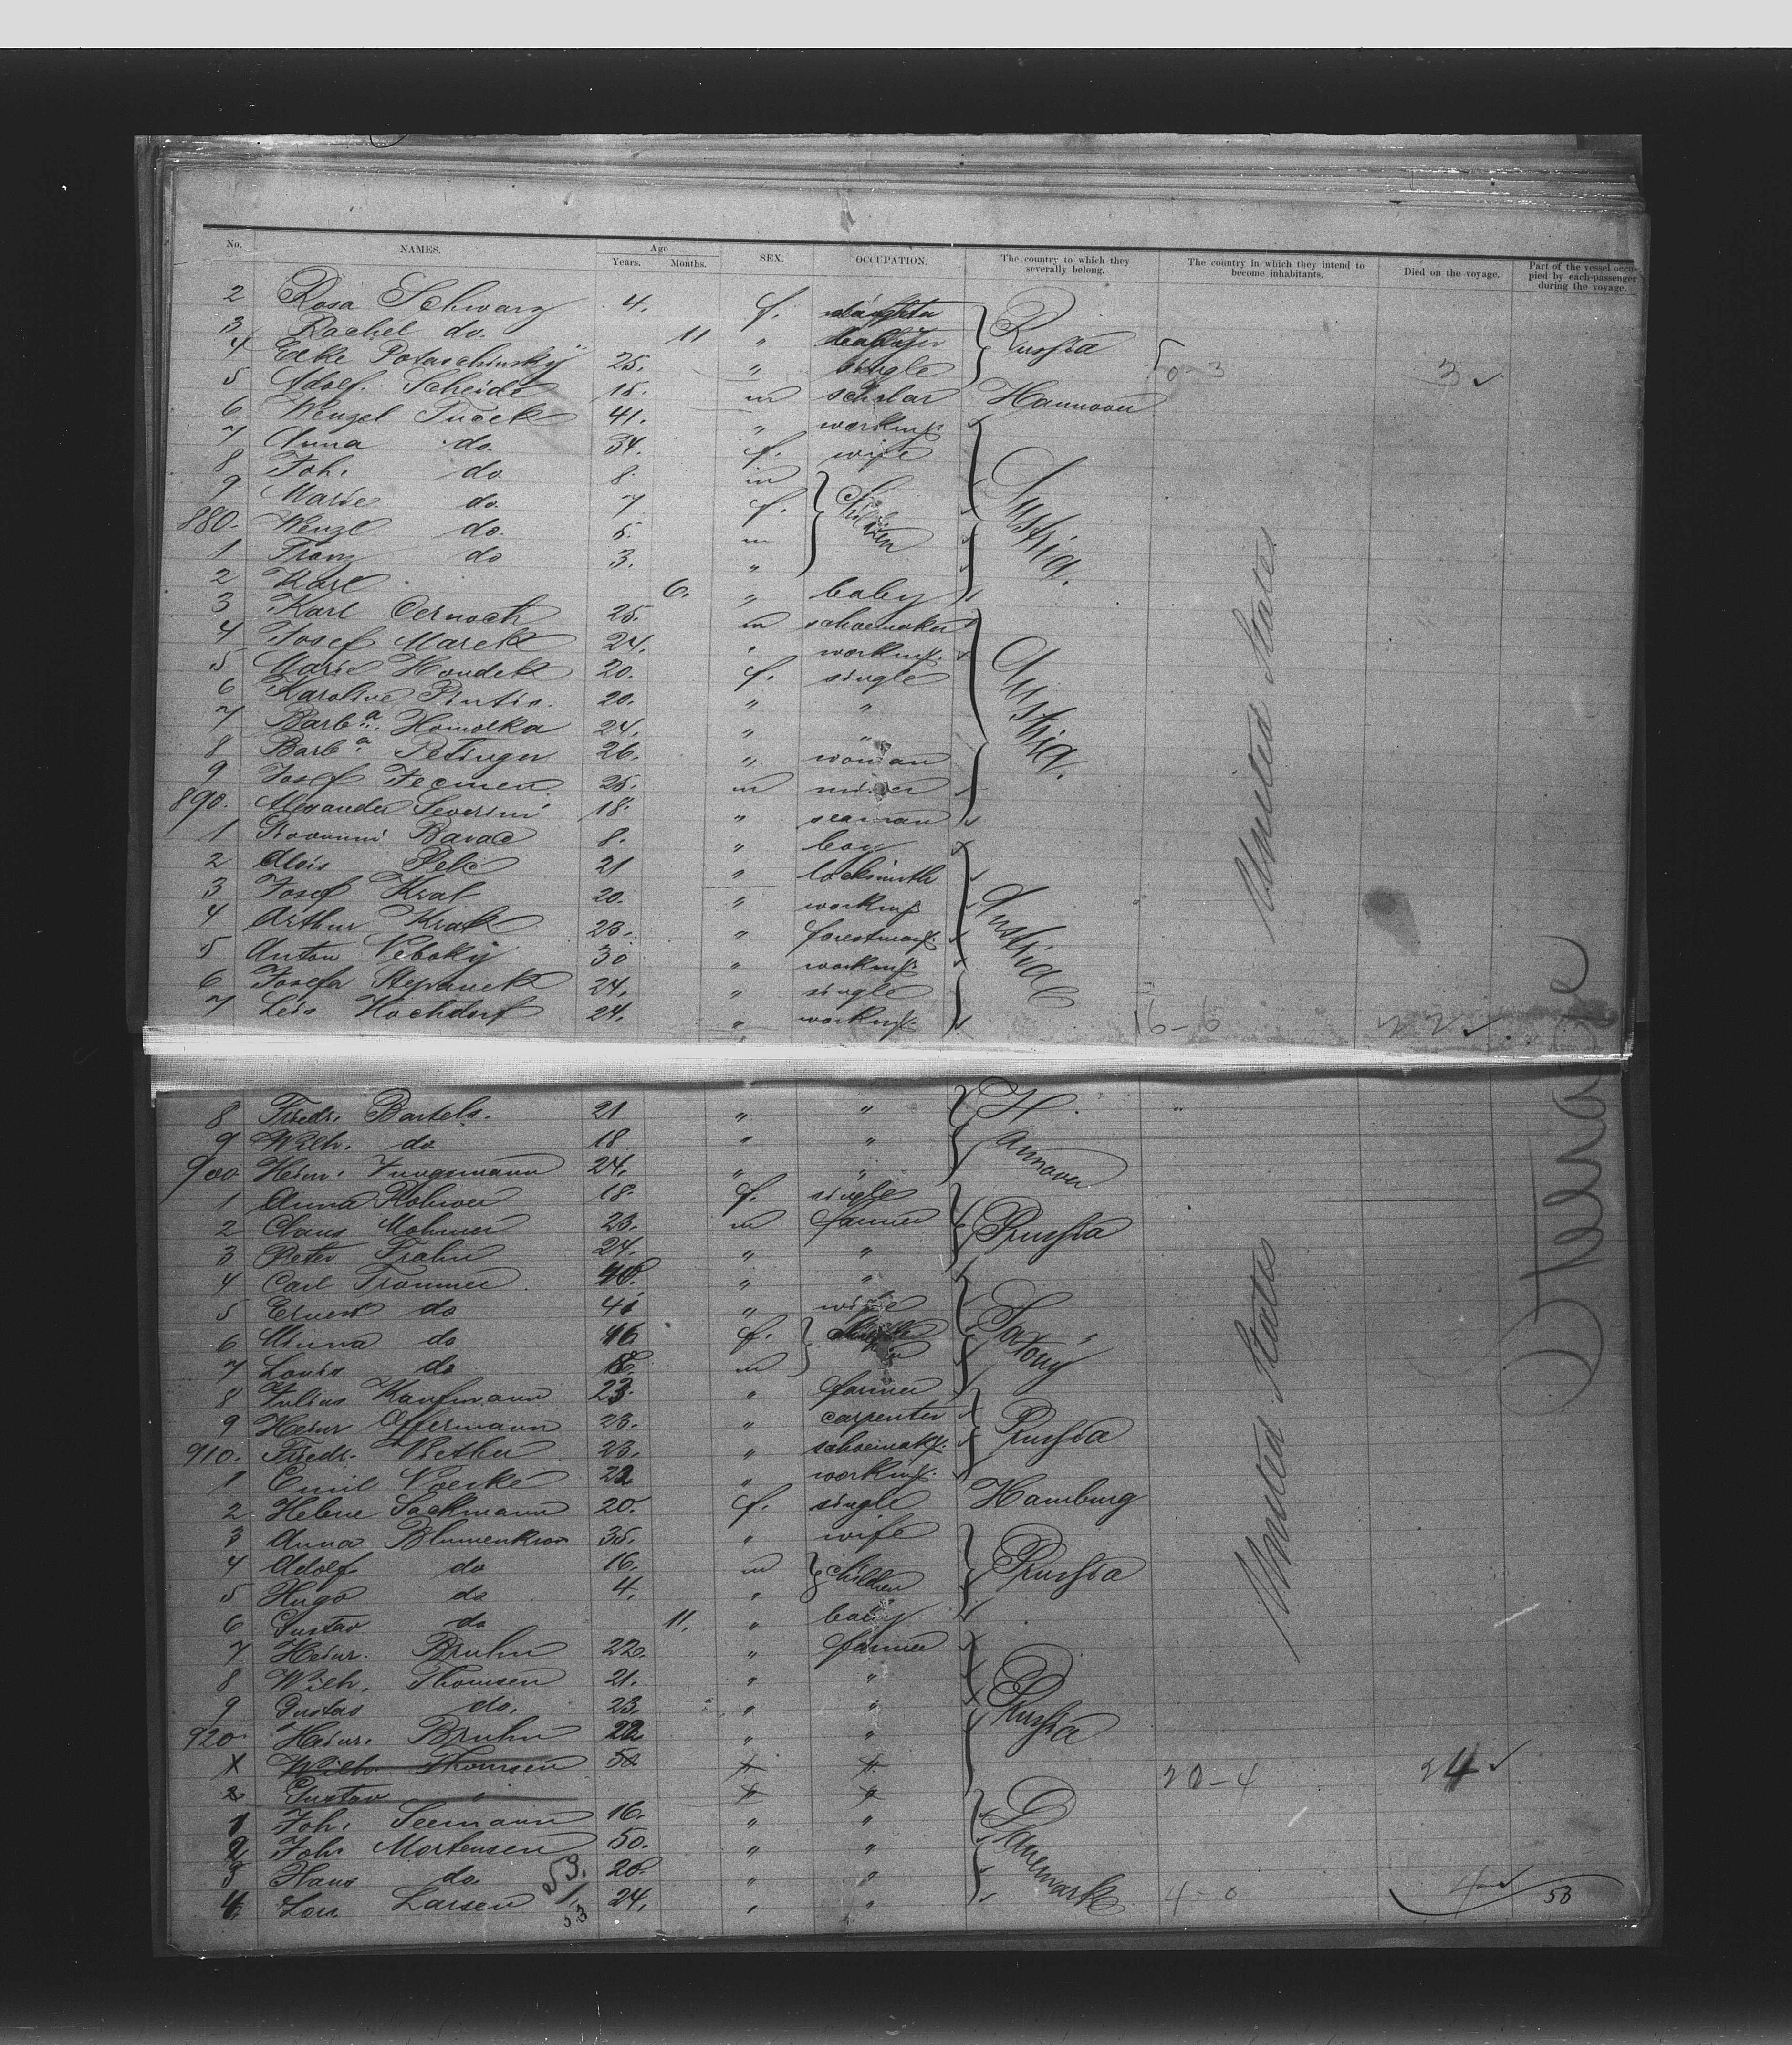 No. NAMES. Age Years. Months. SEX. OCCUPATION. The country to which they severally belong. The country in which they intend to become inhabitants. Died on the voyage. Part of the vessel occupied by each passenger during the voyage.
2 Rosa Schwarz 4. f. daughter Russia
3 Rachel do. 11 "
4 Potaschinsky 25. " single 3
5 Adolf Scheide 15. m scholar Hannover
6 Wenzel Turek 41. " workmn
7 Anna do 34. f. wife
8 Joh. do 8. m Children Austria.
9 Marie do. 7 f.
880. Wenzl do. 5. m
1 Franz do 3. "
2 Karl 6. " baby
3 Karl Cernoch 25. m schoemaker
4 Josef Marek 24. " workmn
5 Marie Houdek 20. f. single Austria.
6 Karoline 20. " "
7 Barb.a Homolka 24. " "
8 Barb.a Petinger 26. " woman
9 Josef 25. m miner
890. Alexander Severini 18. " seaman
1 Giovanni Barac 8. " boy
2 Alois Pelc 21 " locksmith
3 Josef Kral 20. " workmn Austria
4 Arthur Krak 23. "
5 Anton 30 " workmn
6 Josefa Stepanek 24. " single
7 Hochdorf 24. " workmn 16-6 22
United States
8 Friedr. Bartels. 21 " " Hannover
9 Wilh. do 18 " "
900 Heinr. Jungmann 24. " "
1 Anna Rohwer 18. f. single
2 Claus 23. m farmer Prussia
3 Peter Frahm 24. " "
4 Carl Trommer 40. " "
5 Ernest do 41 " wife Saxony
6 Minna do 16 f.
7 Louis do m
8 Julius Kaufmann 23. " farmer
9 Heinr 23. " carpenter Prussia
910. Friedr. 23. " schoemakr.
1 Emil 22 " workmn
2 Helene Sackmann 20. f. single Hamburg
3 Anna Blumenkron 35. " wife
4 Adolf do 16. m children Prussia
5 Hugo do 4. "
6 Gustav do 11. " baby
7 Heinr. Bruhn 22. " farmer
8 Wilh. Thomsen 21. " "
9 Gustav do. 23. " " Prussia
920. Heinr. Bruhn 22 " "
X Wilh. Thomsen 20-4 24
2 Gustav "
1 Joh. Seemann 16. " "
2 Joh. Mortensen 50. " " Danemark
3 Hans do. 20. " "
4. Lars Larsen 24. " " 4-0 4 53
53.
1.
53
United States